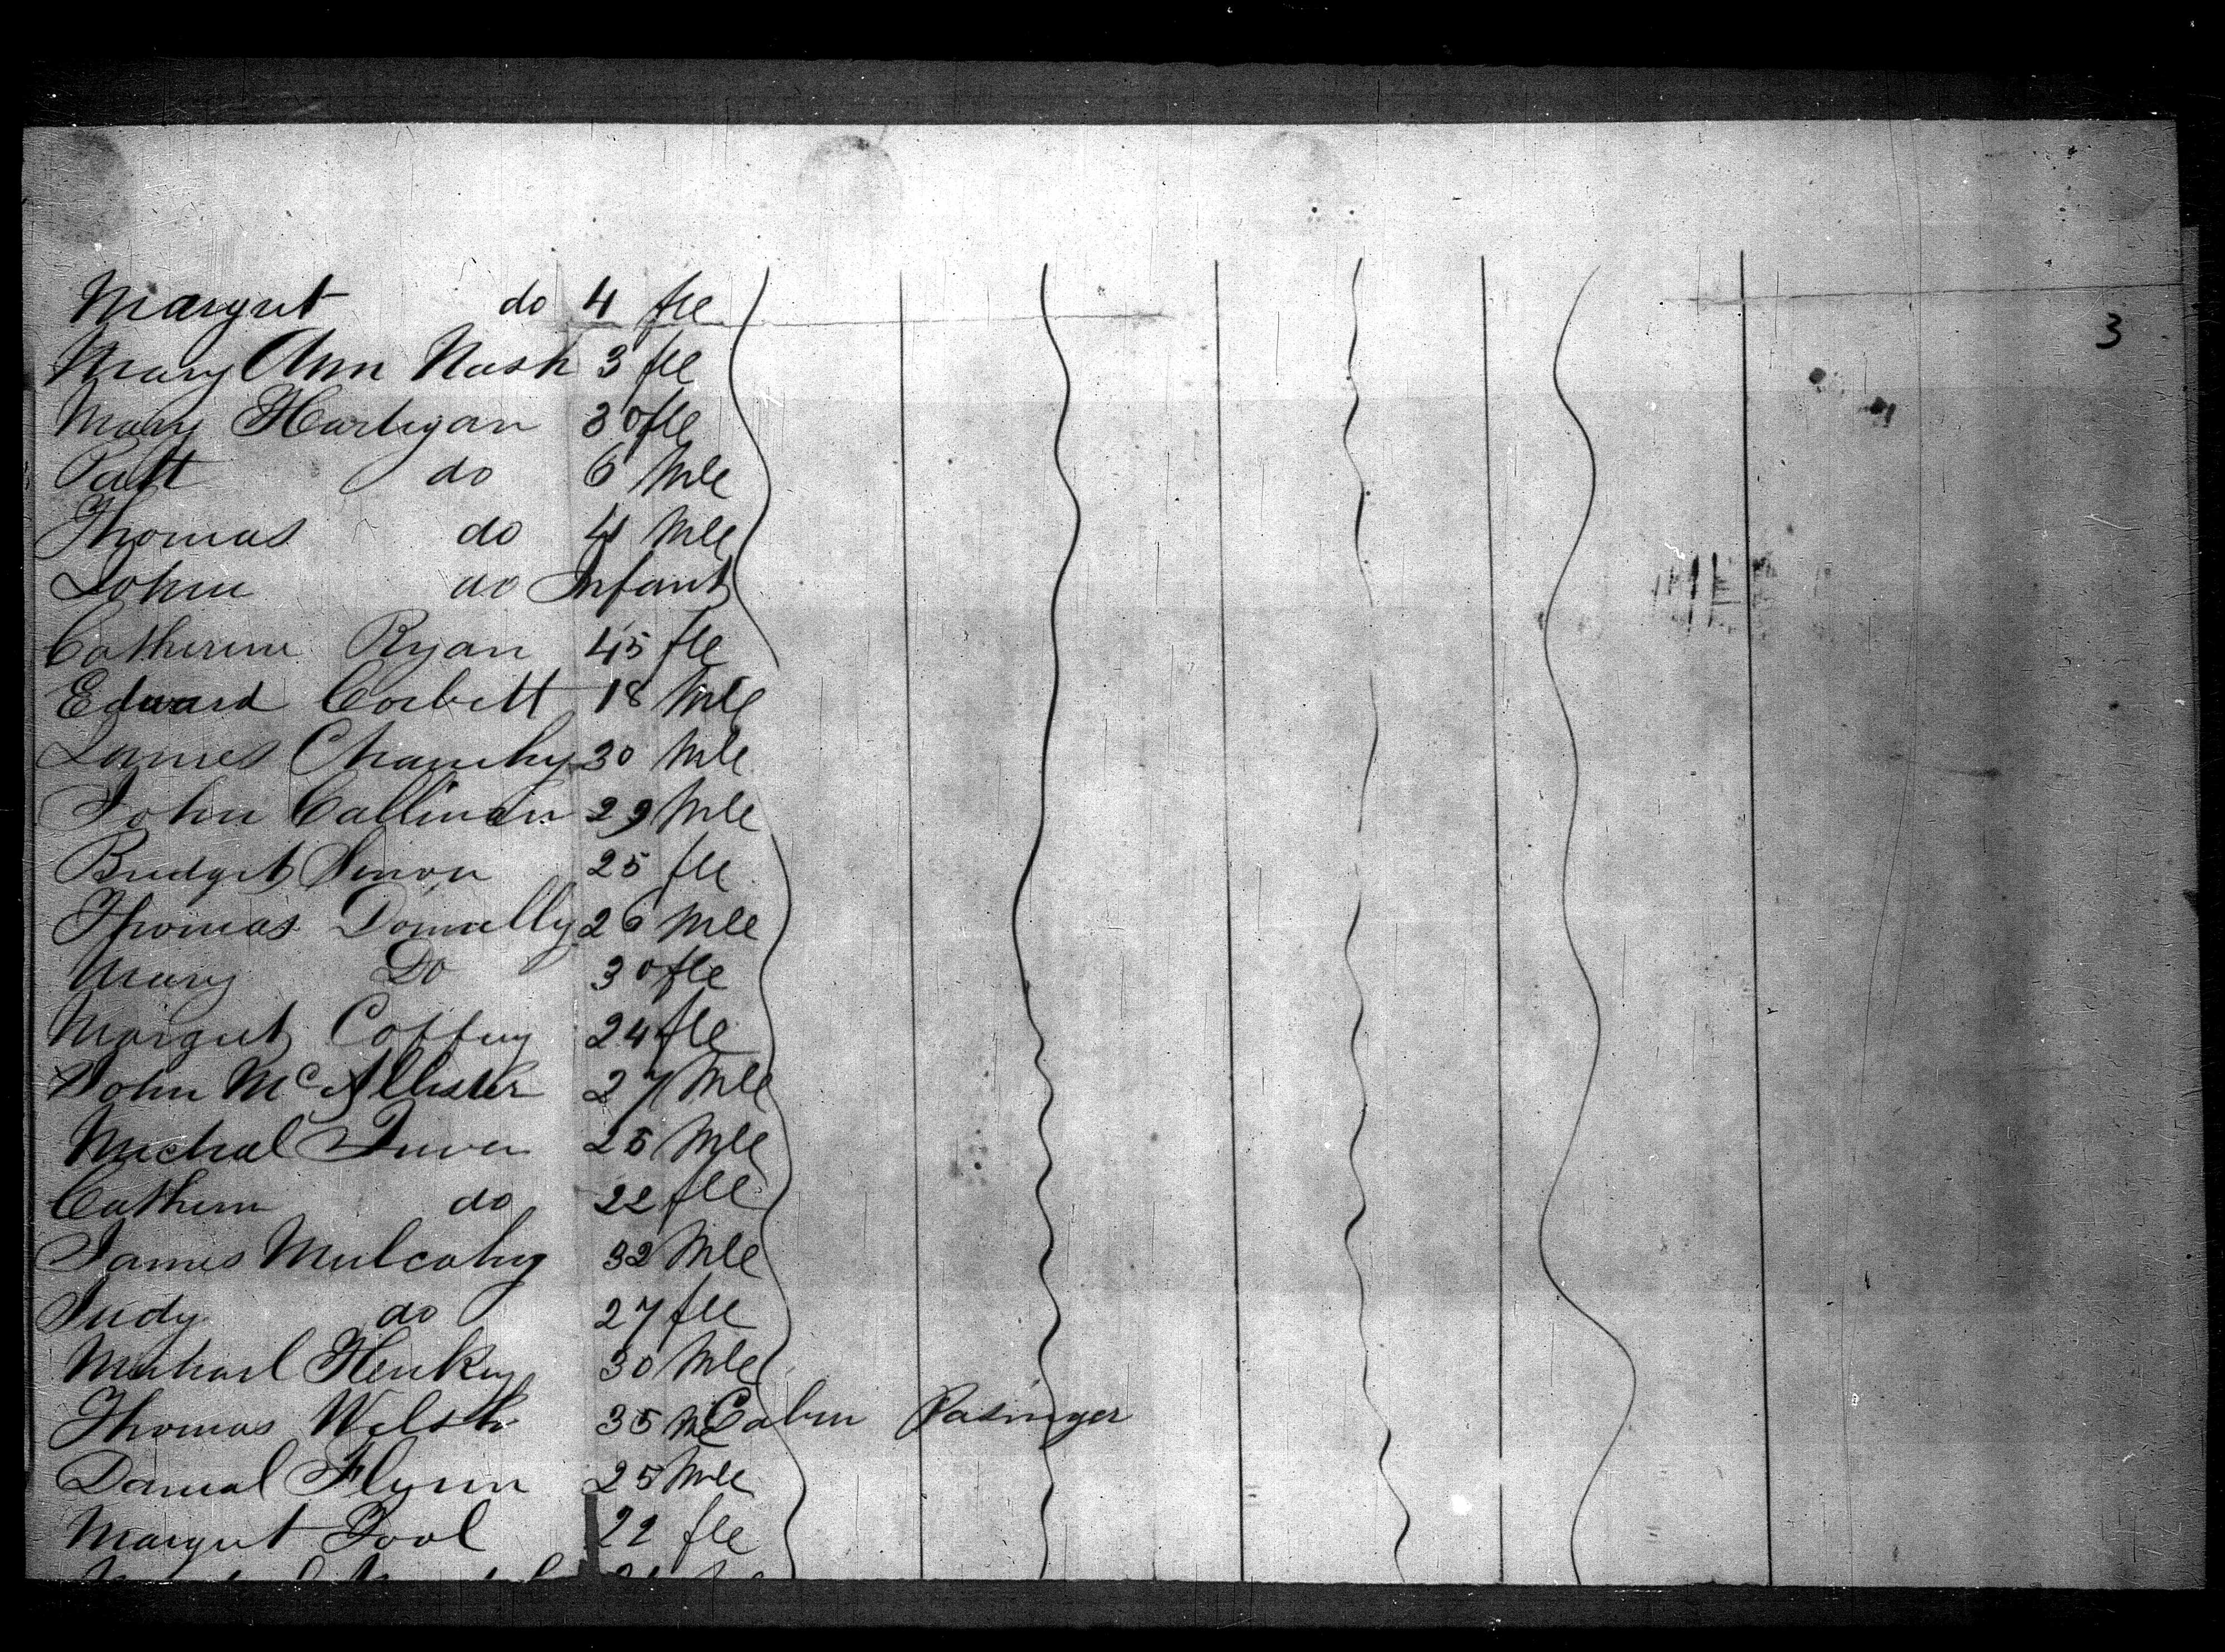 Margret do 4 fle
3
Mary Ann Nash 3 fle
Mary Hartigan 30 fle
Patt do 6 Mle
Thomas do 4 Mle
John do Infant
Catherine Ryan 45 fle
Edward Corbett 18 Mle
James 30 Mle
John Callinan 29 Mle
Bridget 25 fle
Thomas Donnelly 26 Mle
Mary Do 30 fle
Margret Coffey 24 fle
John McAllister 27 Mle
Micheal 25 Mle
Cathern do 22 fle
James Mulcahy 32 Mle
Judy do 27 fle
Michael 30 Mle
Thomas Welsh 35 M Cabin Pasinger
Danial Flynn 25 Mle
Margret Pool 22 fle